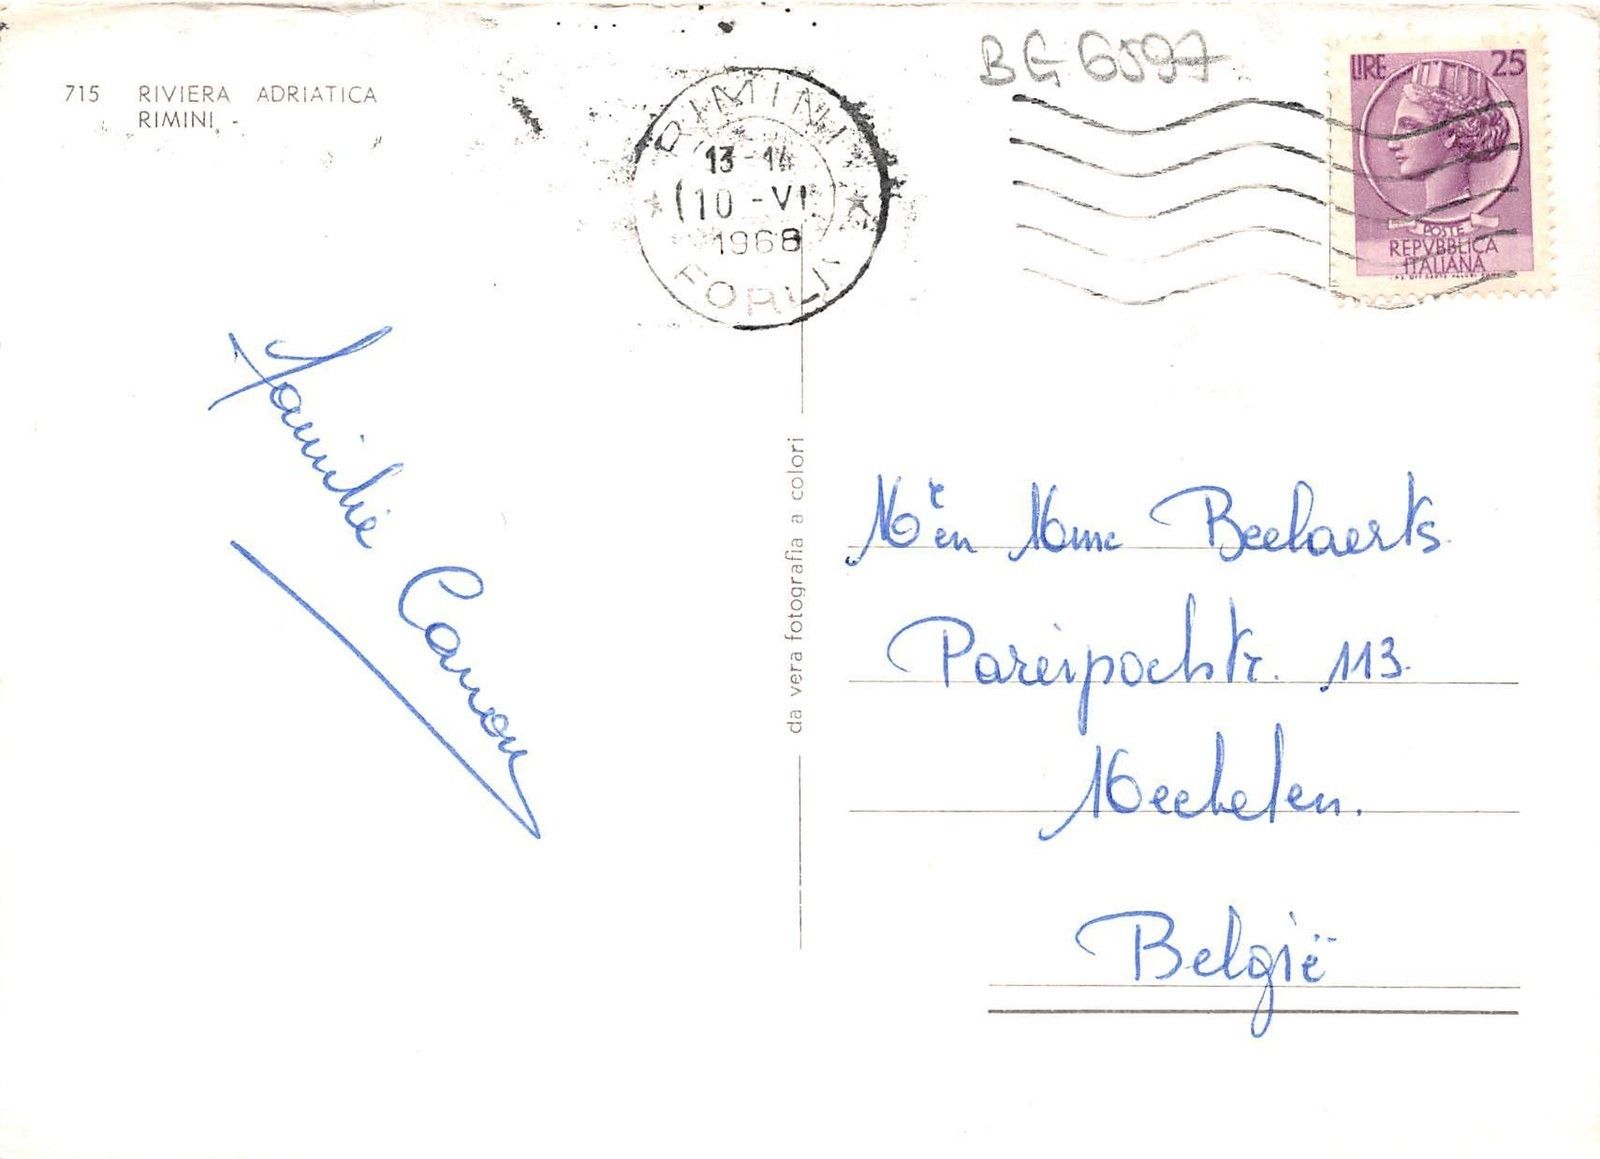 715 RIVIERA ADRIATICA
RIMINI
BG 6597
RIMINI
13-14
10-VI
1968
FORLI
LIRE 25
POSTE
REPVBBLICA
ITALIANA
Familie Canon
da vera fotografia a colori
Mr en Mme Beelaerts
113
Mechelen.
België